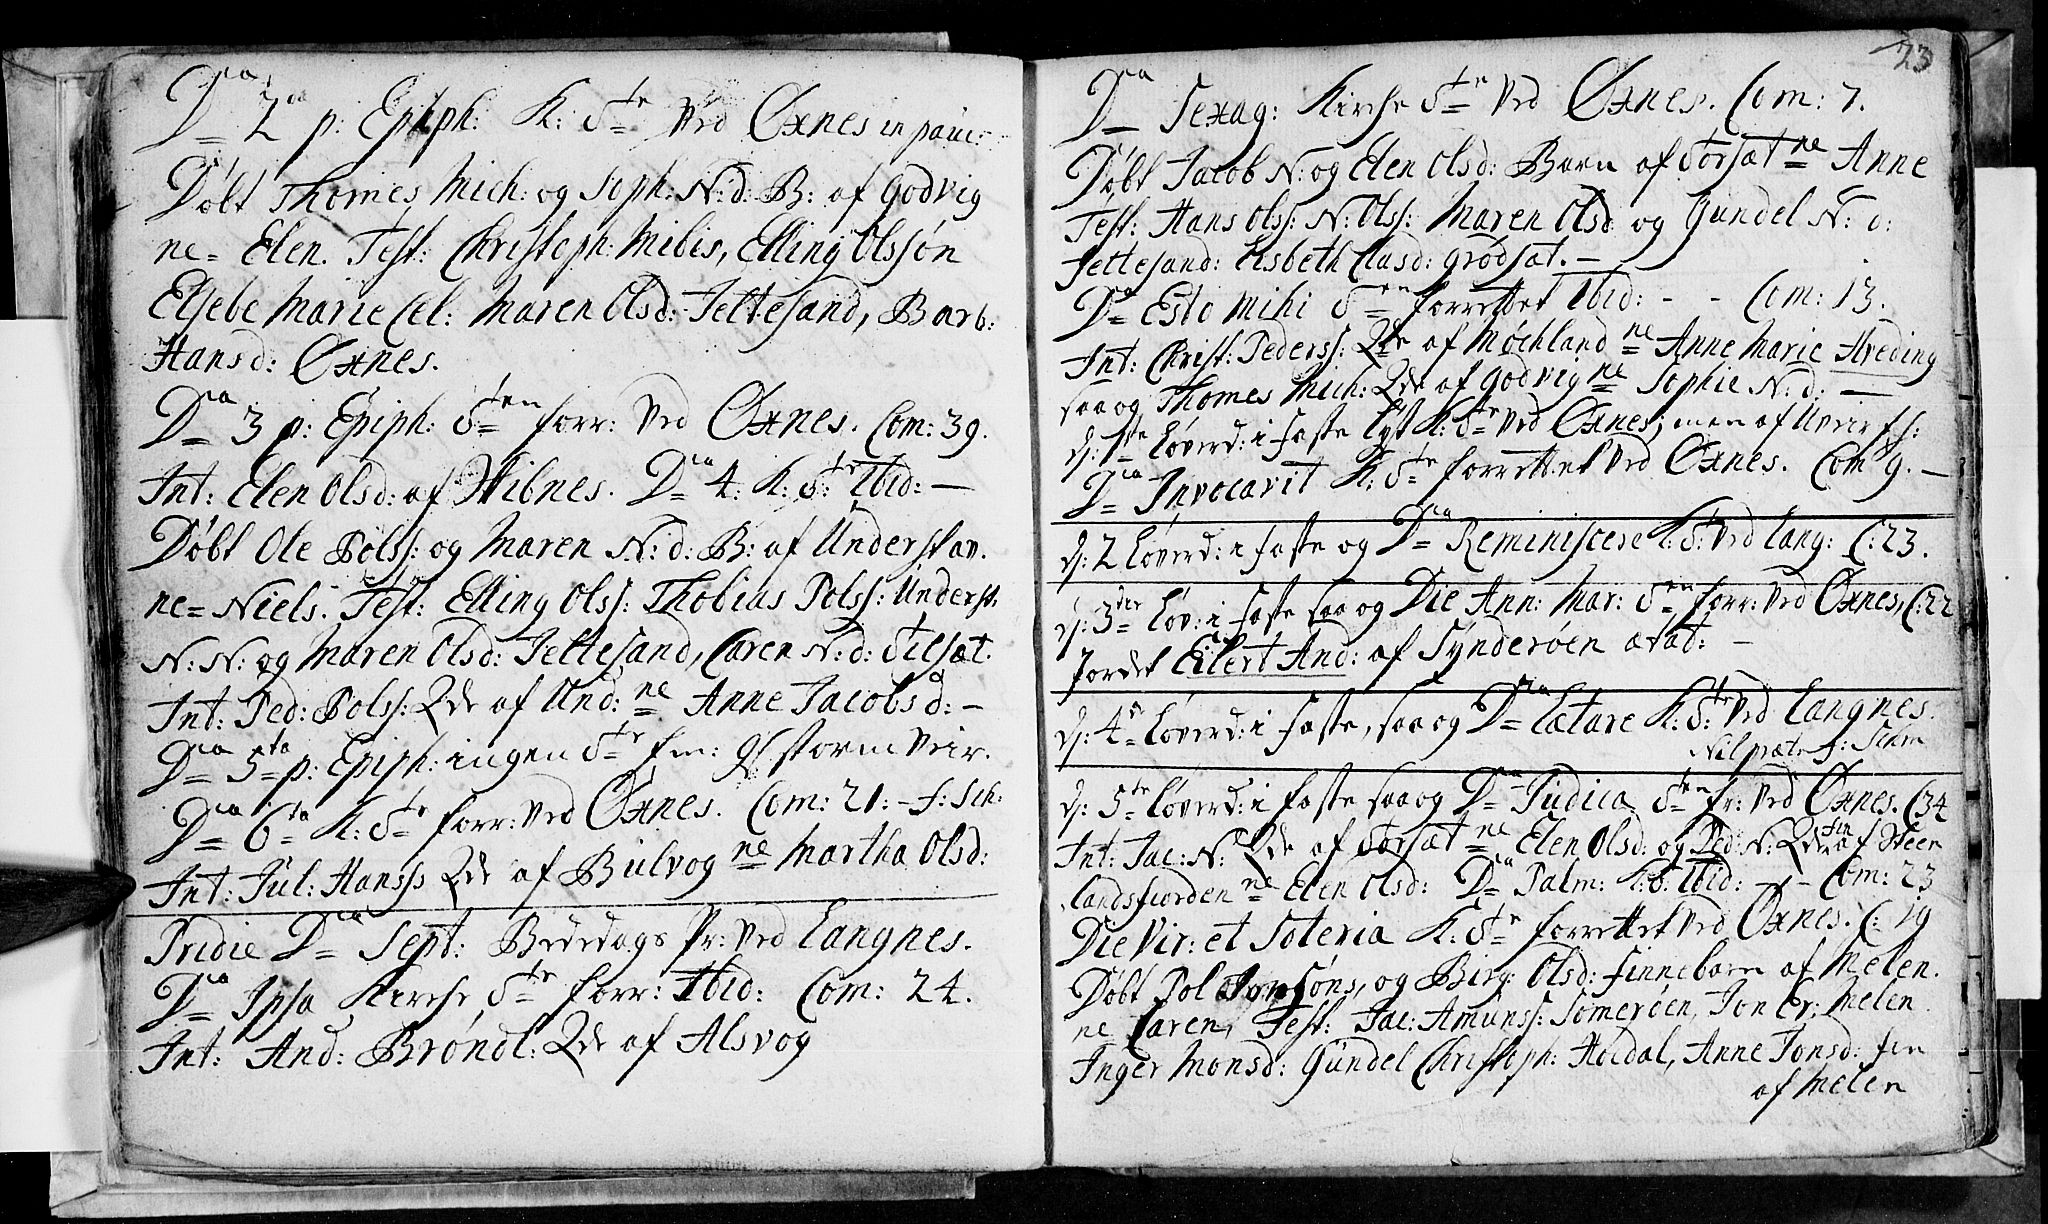 Dca 2da p: Epiph: K: Ste Ved Øxnes in pauc:
Døbt Thomes Mich: og Soph: N:d: B: af Godvig
ne= Elen. Test: Christoph: Mibis, Elling Olssøn
Elsebe Marie Cel: Maren Olsd: Jettesand, Barb:
Hansd: Øxnes.
Dca 3 p: Epiph: Sten forr: Ved Øxnes. Com: 39.
Int: Elen Olsd: af Wibnes. Dca 4: K: Ste Ibid: —
Døbt Ole Polss: og Maren N:d: B: af Understav.
ne= Niels. Test: Elling Olss: Thobias Polss: Underst:
N: N: og Maren Olsd: Jettesand, Caren N:d: Tilsæt.
Int: Ped: Polss: Qde af Und: ne Anne Jacobsd: —
Dca 5ta p: Epiph: ingen Ste for: storm Veir.
Dca 6ta K: Ste forr: Ved Øxnes. Com: 21: — f: Sch:
Int: Jul: Hanss Qde af Bulvog ne Martha Olsd:
Pridie Dca Sept: Bededags Pr: Ved Langnes.
Dca Ipsa Kirche Ste forr: Ibid: Com: 24.
Int: And: Brøndl: Qde af Alsvog
23
Dca Sexag: Kirche Ste Ved Øxnes. Com: 7.
Døbt Jacob N: og Elen Olsd: Barn af Forsæt ne Anne
Test: Hans Olss: N: Olss: Maren Olsd og Gundel N: d:
Jettesand: Lisbeth Clasd: Grødsæt. —
Dca Esto Mihi Sten forrettet Ibid: - - Com: 13.
Int: Christ: Pederss: Qde af Møchland ne Anne Marie Hveding
saa og Thomes Mich: Qde af Godvig ne Sophie N: d: —
d: 1ste Løverd: i Faste lyst K: Ste Ved Øxnes, men af Uveir f s:
Dca Invocavit K: Ste forrettet Ved Øxnes. Com 9. —
d: 2 Løverd: i Faste og Dca Reminiscere K: S: Ved Lang: C: 23.
d: 3die Løv: i Faste saa og Die Ann: Mar: Sten forr: Ved Øxnes, C: 22
Jordet Eilert And: af Synderøen ætat: —
d: 4de Løverd: i Faste, saa og Dca Lætare K: Ste Ved Langnes.
Nil præter f: Schm
d: 5te Løverd: i Faste saa og Dca Judica Sten fr: Ved Øxnes. C 34
Int: Jac: N: Qde af Forsæt ne Elen Olsd: og Ped: N: Qde fin af Steen
landsfiorden ne Elen Olsd: Dca Palm: K: S: Ibid: — - Com: 23
Die Vir: et Soteria K: Ste forrettet Ved Øxnes. C: 19
Døbt Pol Jonsøns, og Birg: Olsd: finnebarn af Melen.
ne Caren, Test: Jac: Amunss: Somerøen, Jon Er: Melen
Inger Monsd: Gundel Christoph: Høidal, Anne Jonsd: fin
af Melen